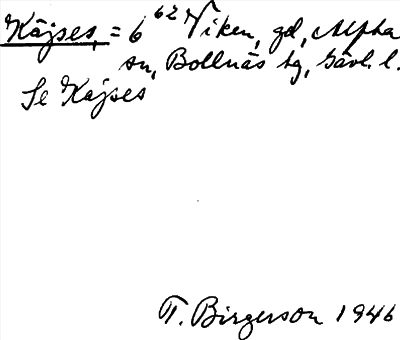 Käjses, = 6⁶² Viken, gd, Alfta
sn, Bollnäs tg, Gävl. l.
Se Kajses
T. Birgerson 1946